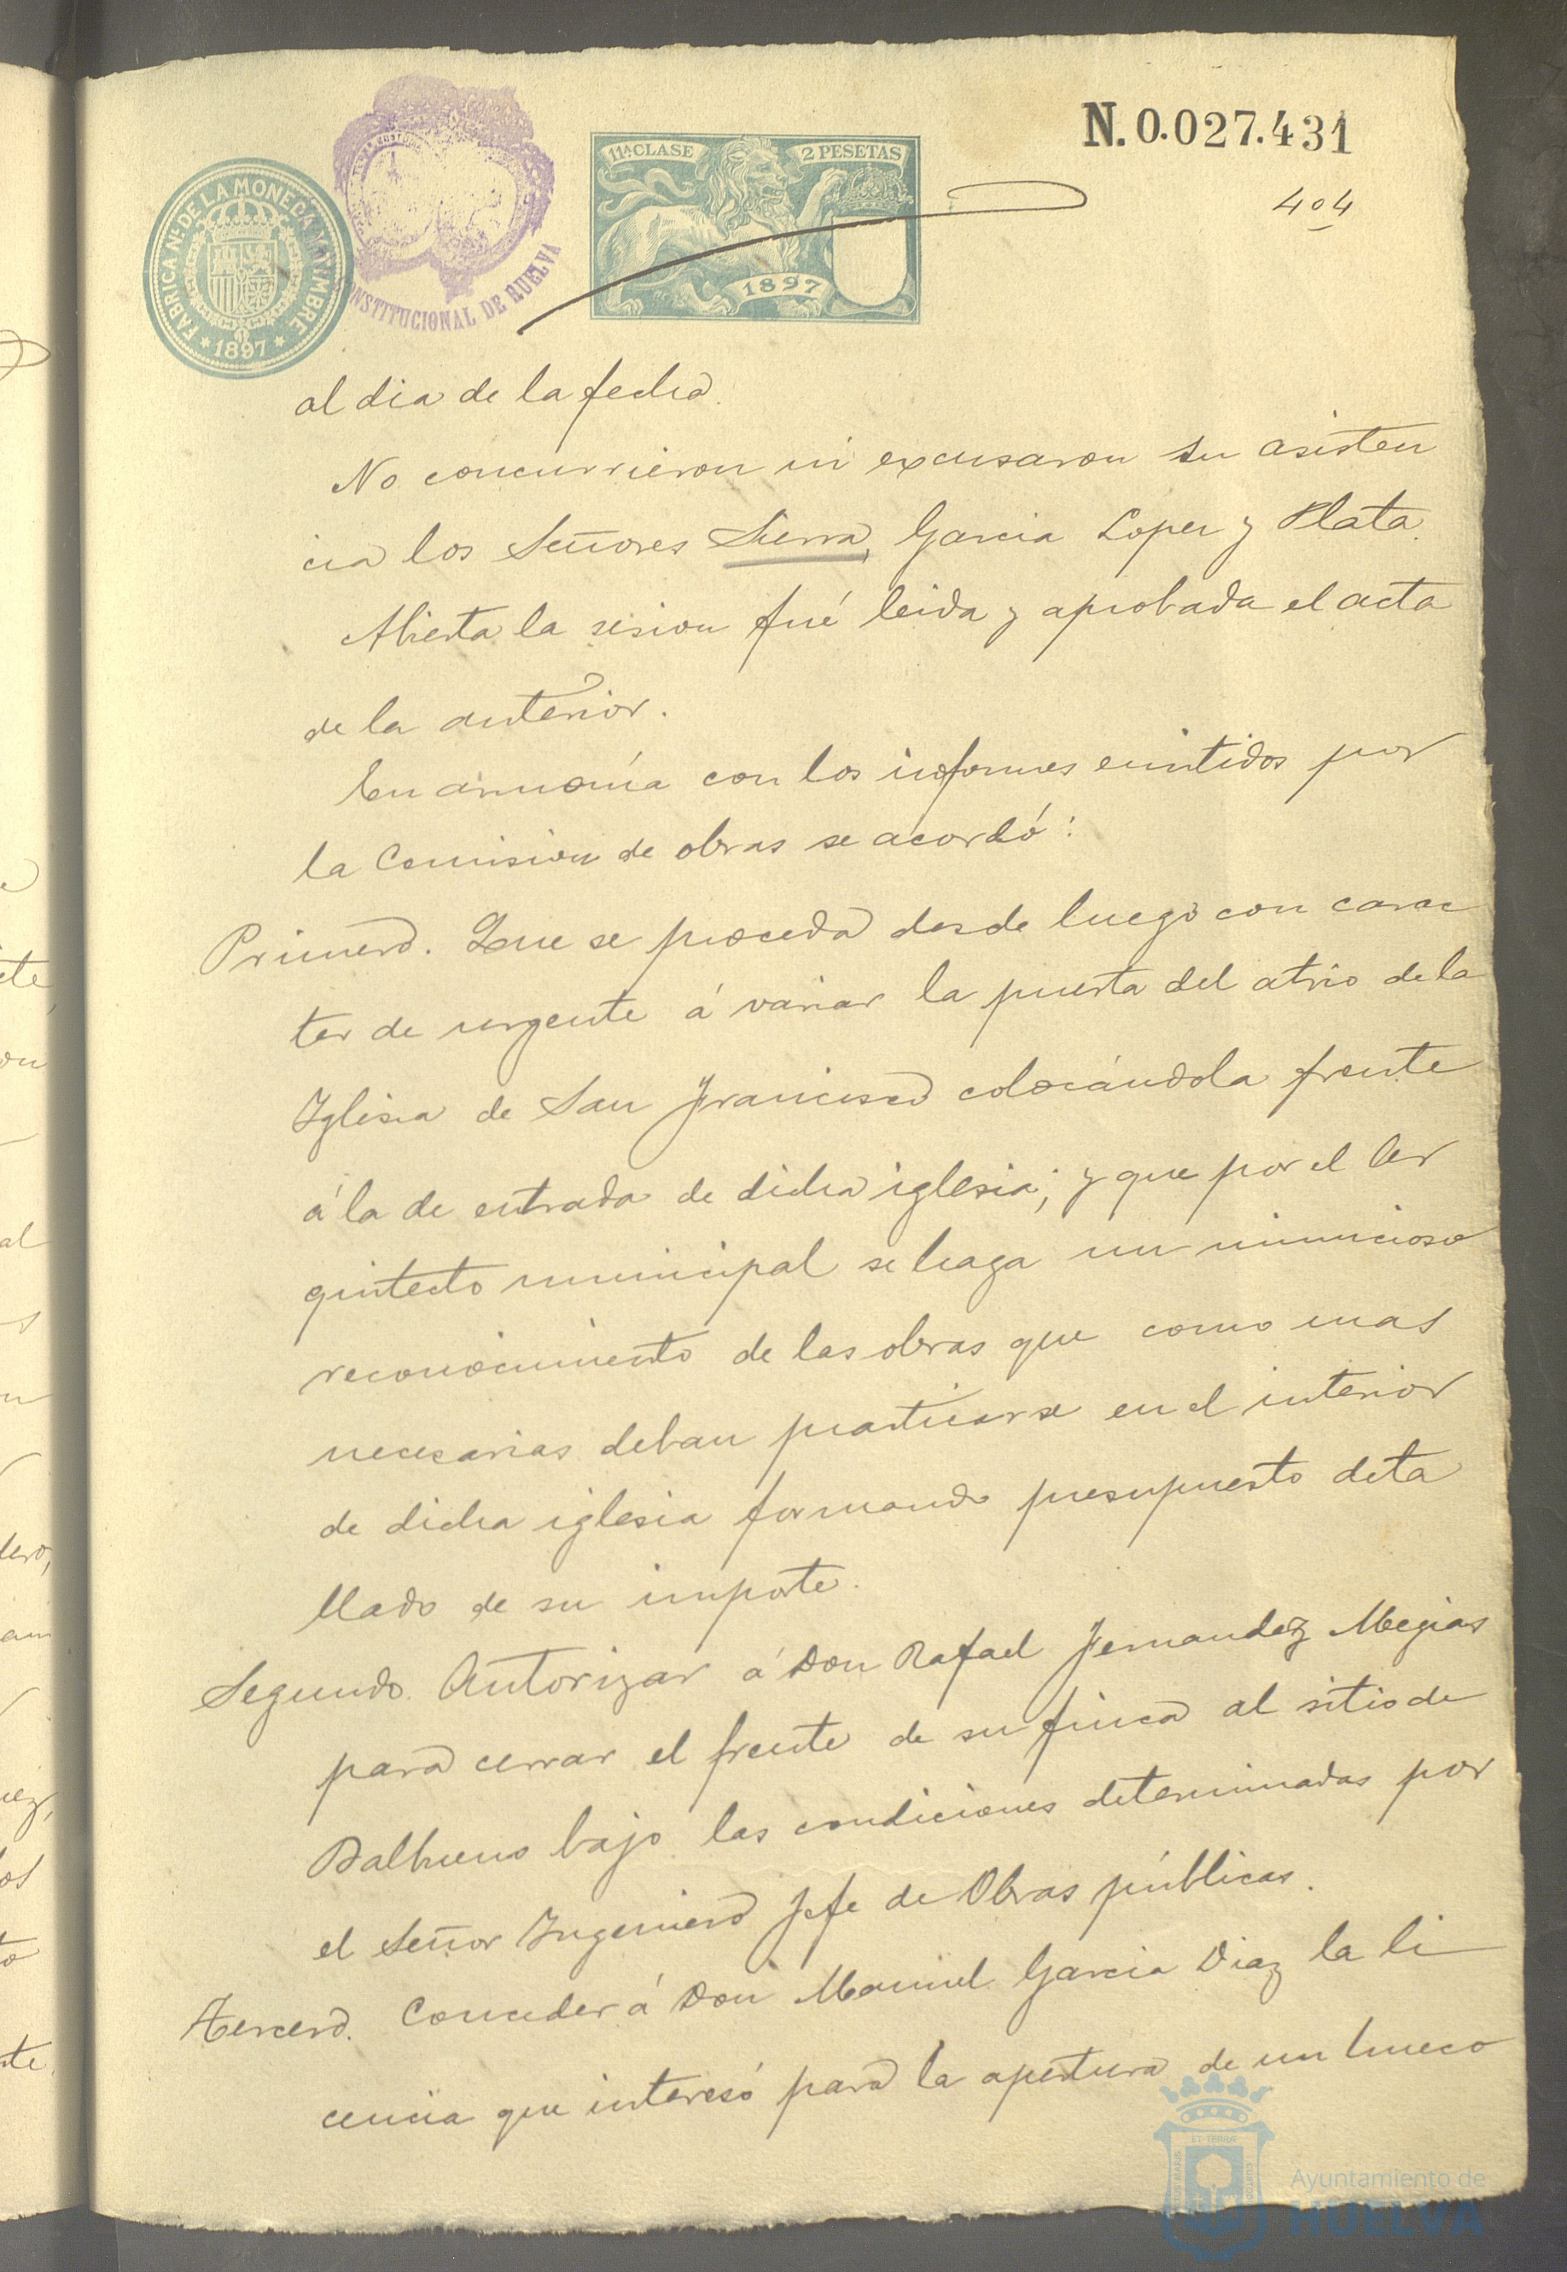 N. 0.027.431
404
11ª CLASE 2 PESETAS
1897
FABRICA Nᴸ DE LA MONEDA Y TIMBRE
* 1897 *
NSTITUCIONAL DE HUELVA
al dia de la fecha.
No concurrieron ni excusaron su asisten
cia los Señores Sierra, Garcia Lopez y Plata.
Abierta la sesion fué leida y aprobada el acta
de la anterior.
En armonía con los informes emitidos por
la Comision de obras se acordó:
Primero. Que se proceda desde luego con carac
ter de urgente á variar la puerta del atrio de la
Iglesia de San Francisco colocándola frente
á la de entrada de dicha iglesia; y que por el Ar
quitecto municipal se haga un minucioso
reconocimiento de las obras que como mas
necesarias deban practicarse en el interior
de dicha iglesia formando presupuesto deta
llado de su importe.
Segundo. Autorizar á Don Rafael Fernandez Megias
para cerrar el frente de su finca al sitio de
Balbueno bajo las condiciones determinadas por
el Señor Ingeniero Jefe de Obras públicas.
Tercero. Conceder á Don Manuel Garcia Diaz la li
cencia que interesó para la apertura de un hueco
Ayuntamiento de
HUELVA